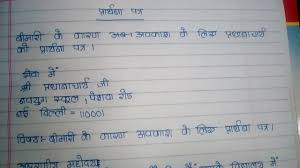 प्रार्थना पत्र
बीमारी के कारण अवकाश के लिए प्रधानाचार्य
को प्रार्थना पत्र।
सेवा में
श्री प्रधानाचार्य जी
नवयुग स्कूल, पेशवा रोड
नई दिल्ली = 110001
विषय:- बीमारी के कारण अवकाश के लिए प्रार्थना पत्र।
आदरणीय महोदय